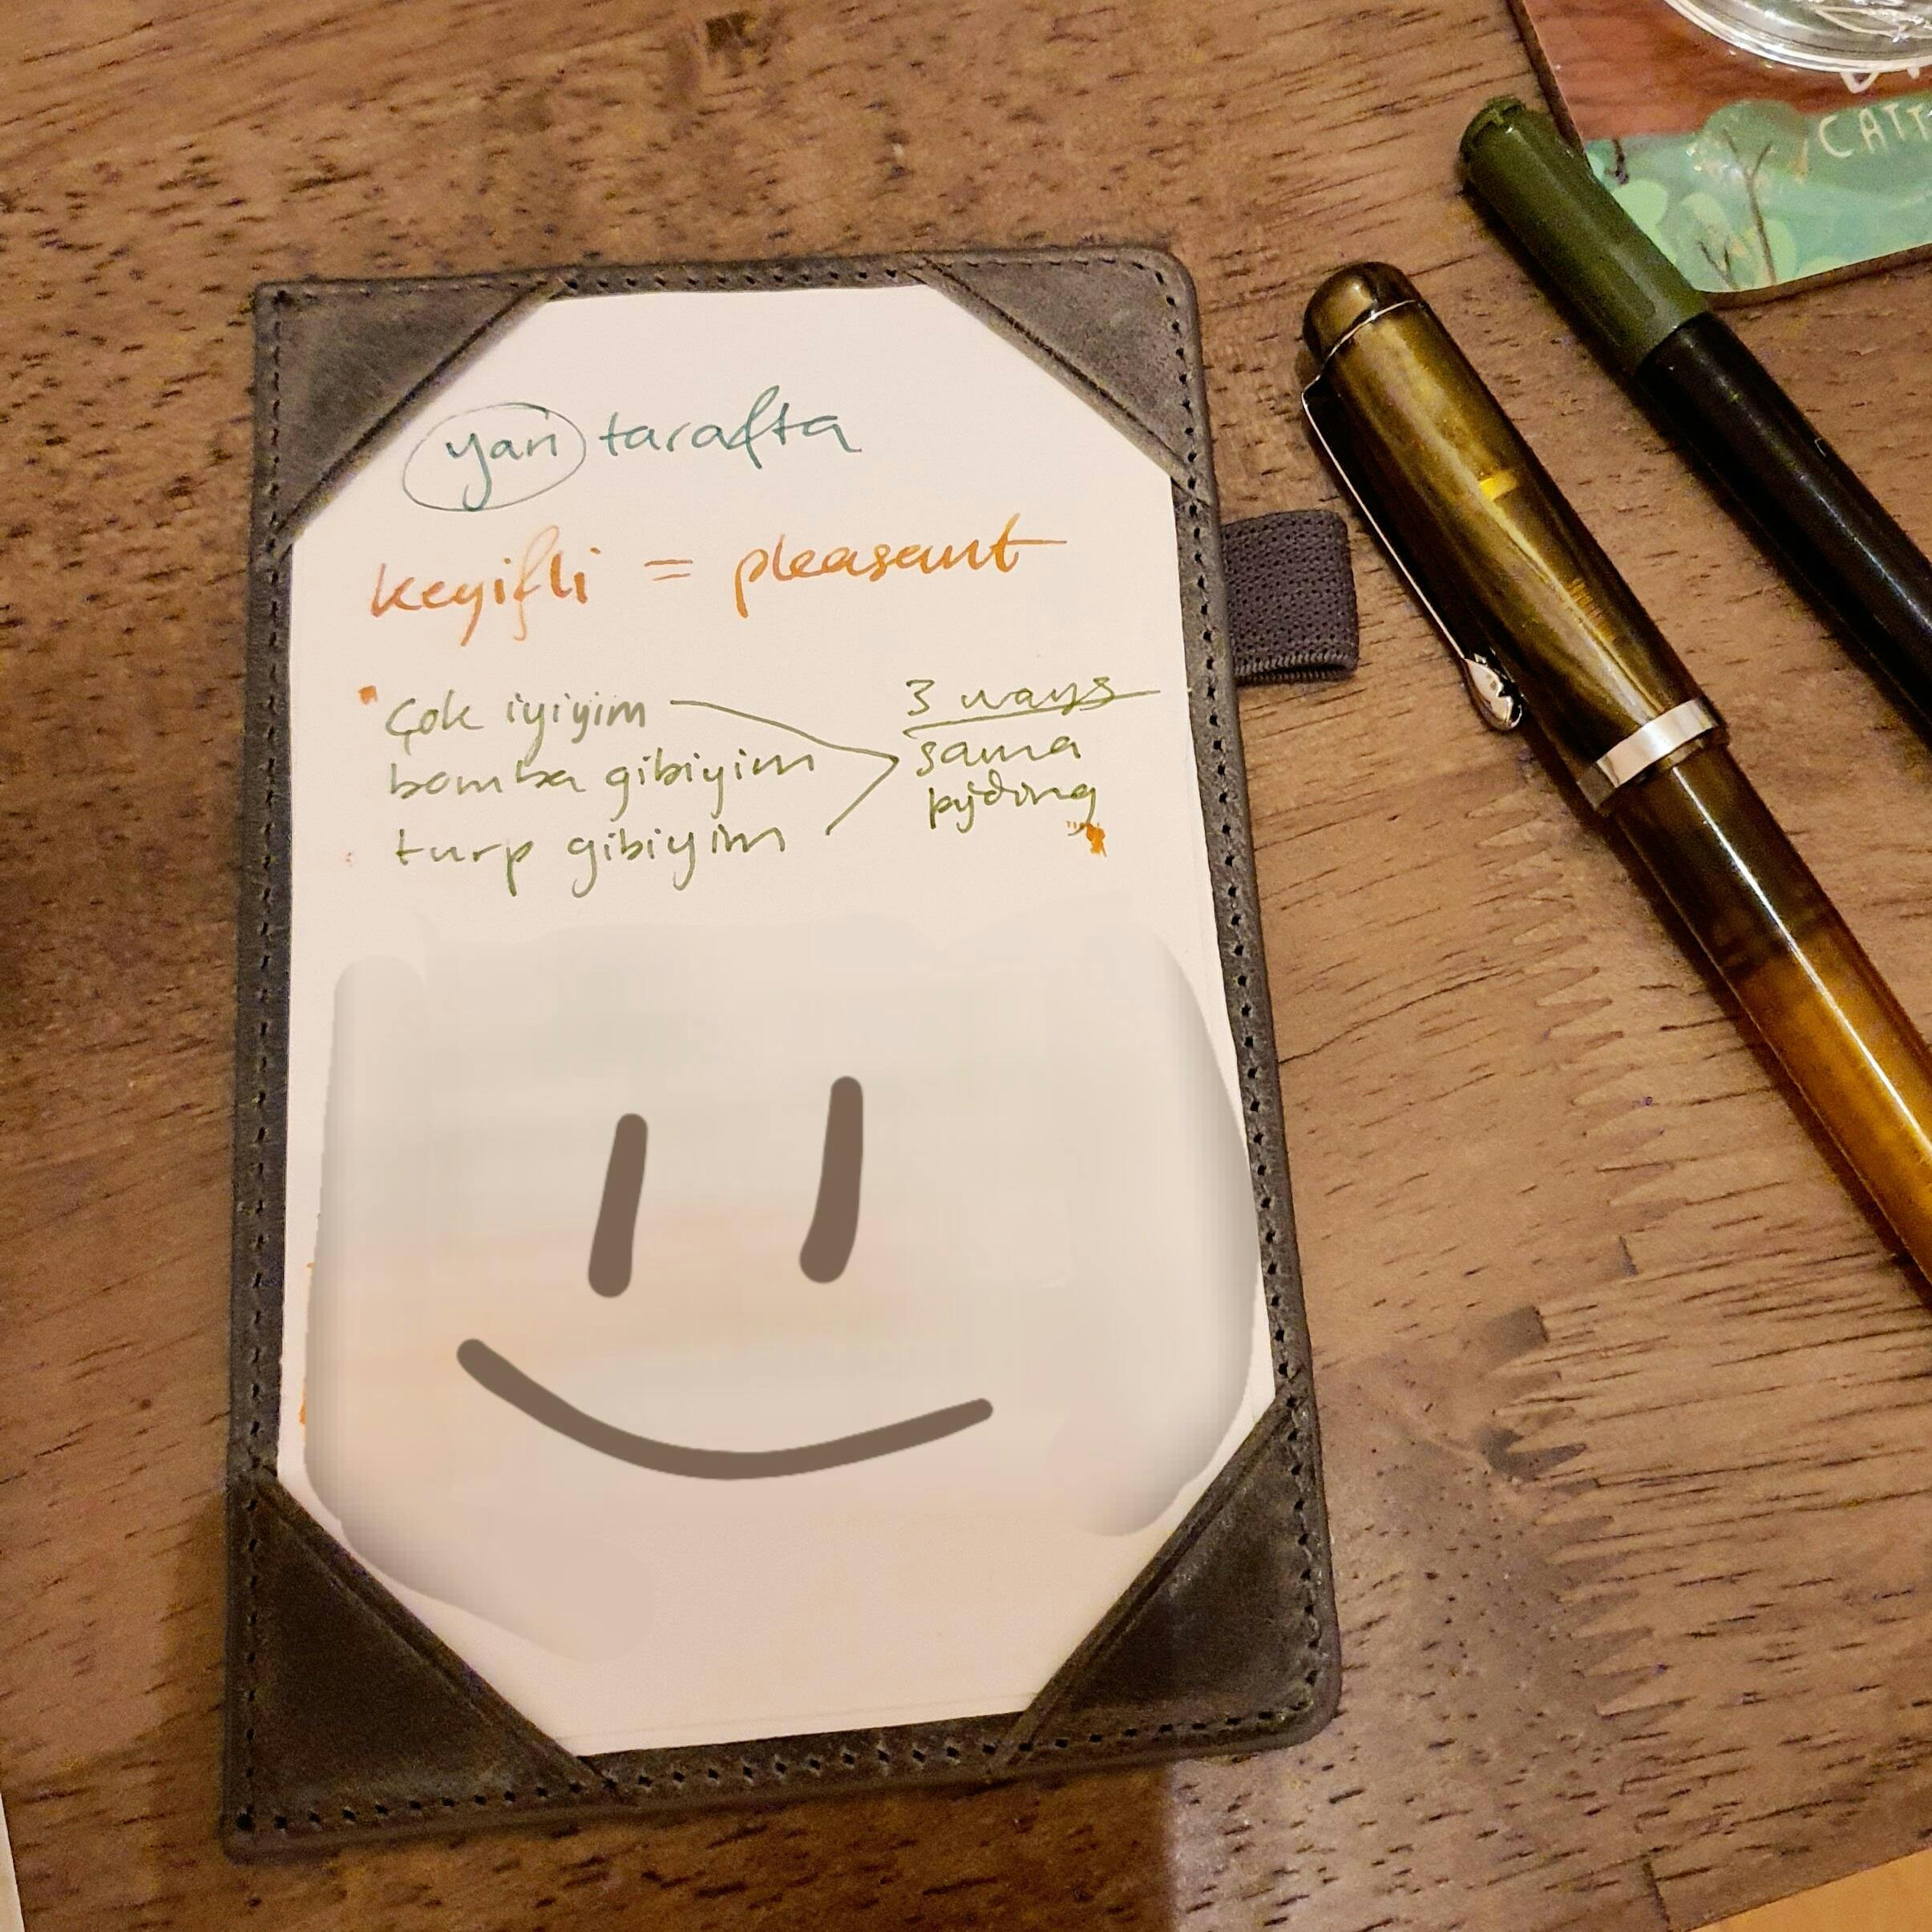 yan tarafta
keyifli = pleasant
çok iyiyim
bomba gibiyim
turp gibiyim
3 ways
sama
þýðing
CATT